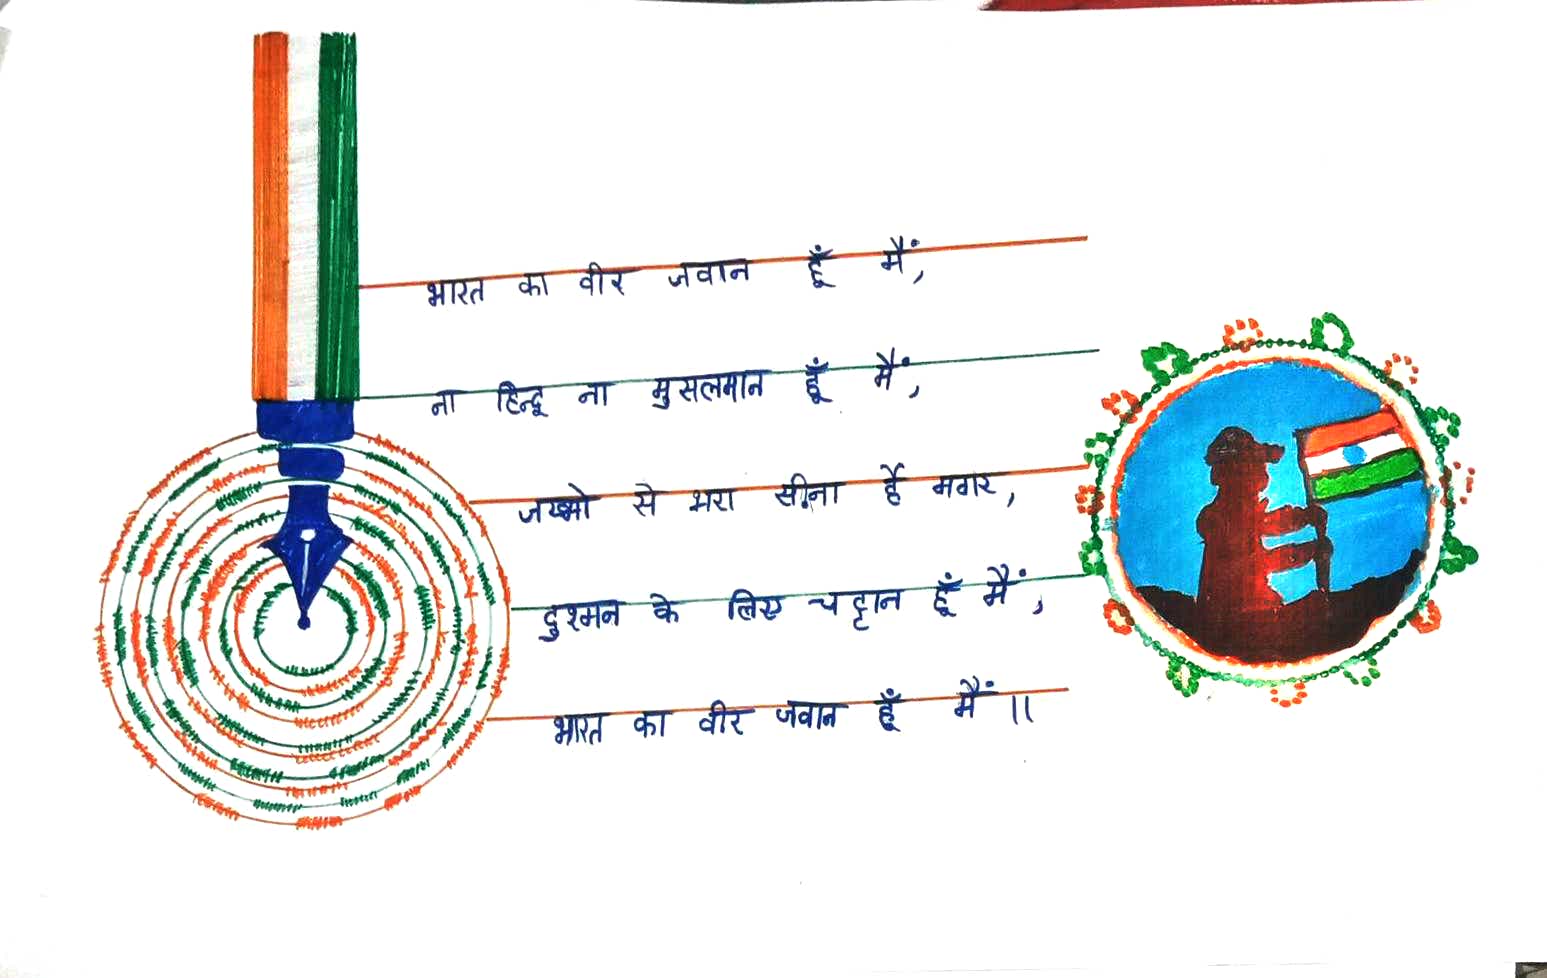 भारत का वीर जवान हूँ मैं,
ना हिन्दू ना मुसलमान हूँ मैं,
जख्मो से भरा सीना हैं मगर,
दुश्मन के लिए चट्टान हूँ मैं,
भारत का वीर जवान हूँ मैं ।।